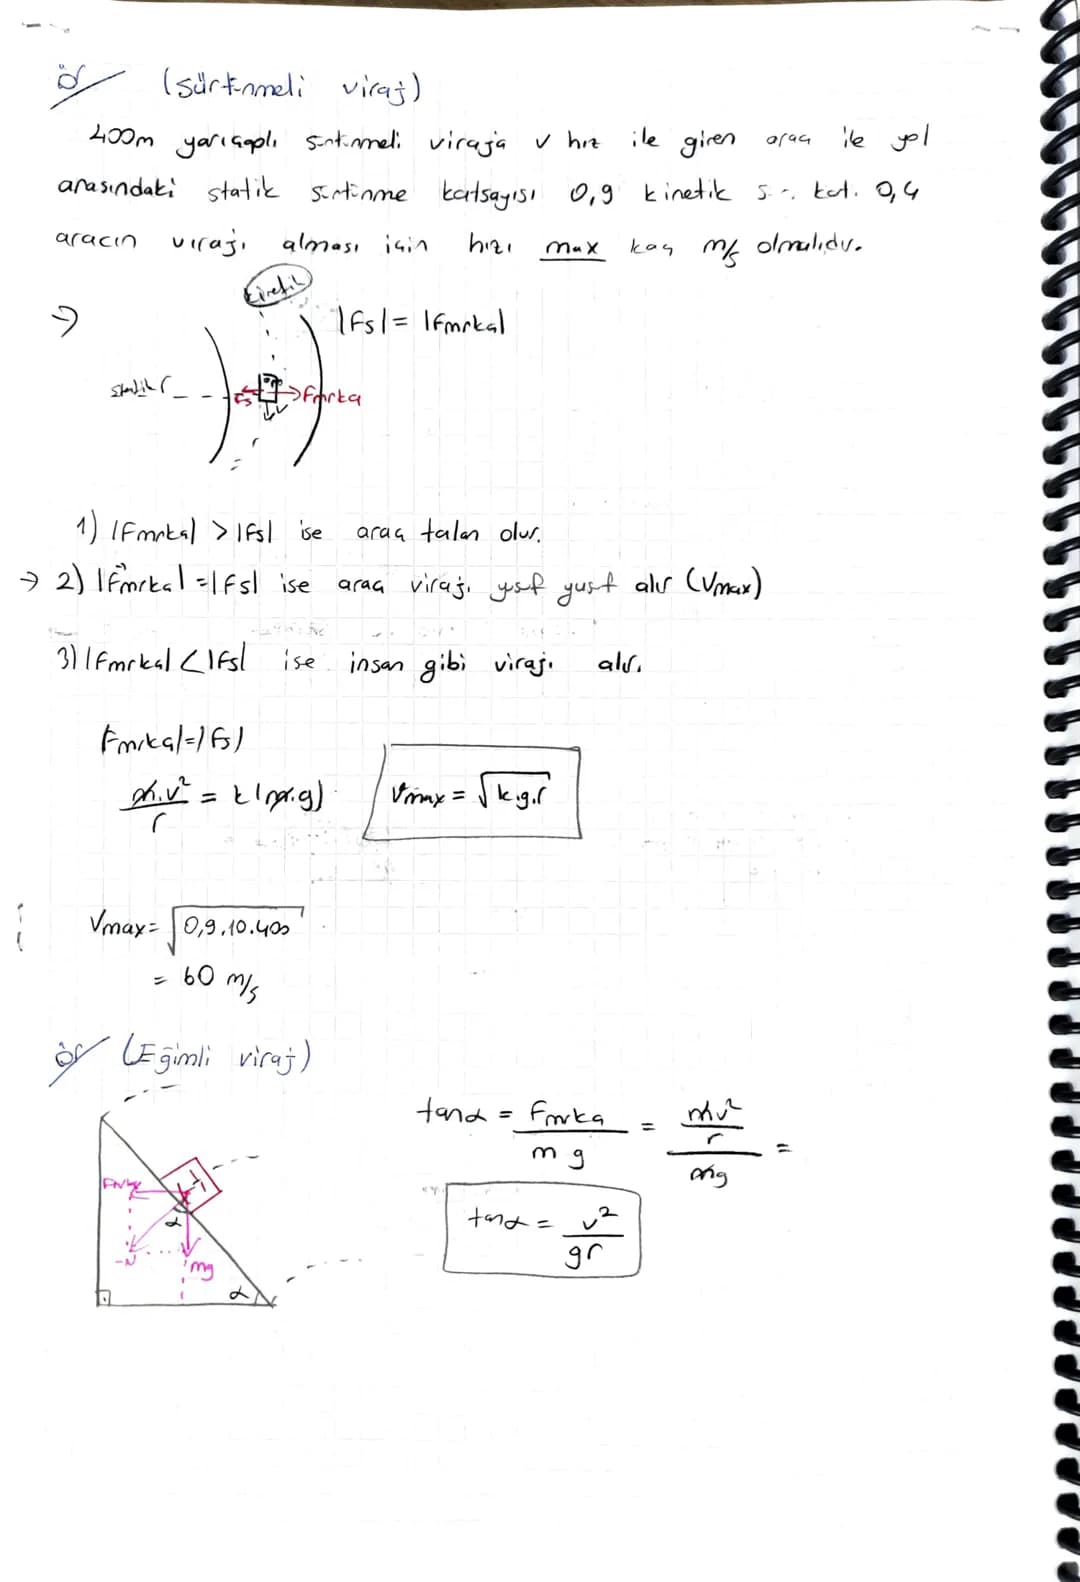 ör/ (sürtünmeli viraj)
400m yarıçaplı sürtünmeli viraja v hız ile giren araç ile yol
arasındaki statik sürtünme katsayısı 0,9 kinetik s-. kat. 0,4
aracın virajı alması için hızı max kaç m/s olmalıdır.
kinetik
→ |Fs| = |Fmrkal
statik
Fs Fmrka
V
1) |Fmrkal > |Fs| ise araç talan olur.
→ 2) |Fmrkal = |Fs| ise araç virajı yusf yusf alır (Vmax)
3) |Fmrkal < |Fs| ise insan gibi virajı alır.
Fmrkal = |Fs|
m.v² / r = k(m.g) Vmax = √k.g.r
Vmax = √0,9.10.400
= 60 m/s
ör/ (Eğimli viraj)
tanα = Fmrka / mg = mv² / r / mg =
tanα = v² / gr
Fmrk
α
-N
mg
α